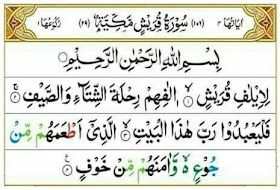 اٰیَاتُهَا ٤ (١٠٦) سُوْرَةُ قُرَيْشٍ مَّكِّيَّةٌ (٢٩) رُكُوْعُهَا ١
بِسْمِ اللّٰهِ الرَّحْمٰنِ الرَّحِيْمِ
لِاِيْلٰفِ قُرَيْشٍ ۙ١ اٖلٰفِهِمْ رِحْلَةَ الشِّتَآءِ وَالصَّيْفِ ۚ٢
فَلْيَعْبُدُوْا رَبَّ هٰذَا الْبَيْتِ ۙ٣ الَّذِيْٓ اَطْعَمَهُمْ مِّنْ
جُوْعٍ ۙ۬ وَّاٰمَنَهُمْ مِّنْ خَوْفٍ ۧ٤